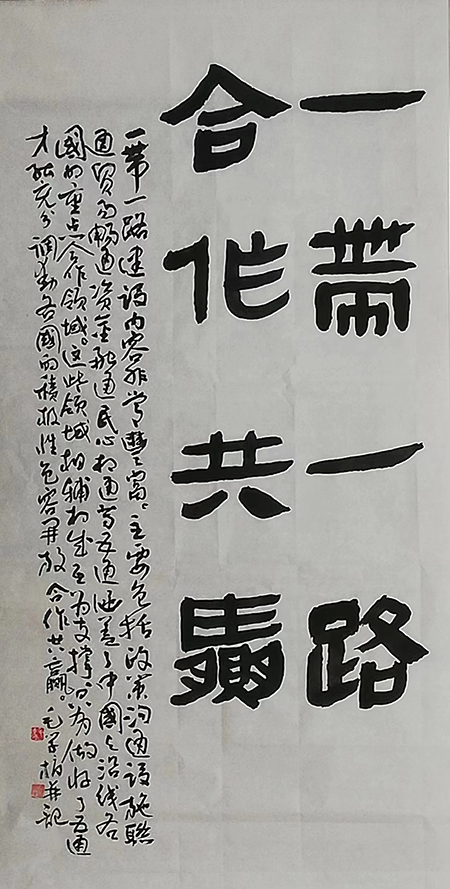 一帶一路
合作共贏
一带一路建设内容非常豐富。主要包括政策沟通设施聯
通贸易畅通资金融通民心相通等五通涵盖了中國与沿线各
國的重点合作领域。这些领域相辅相成互为支撑只有做好了五通
才能充分调动各國的積极性包容开放 合作共赢。毛学 并记